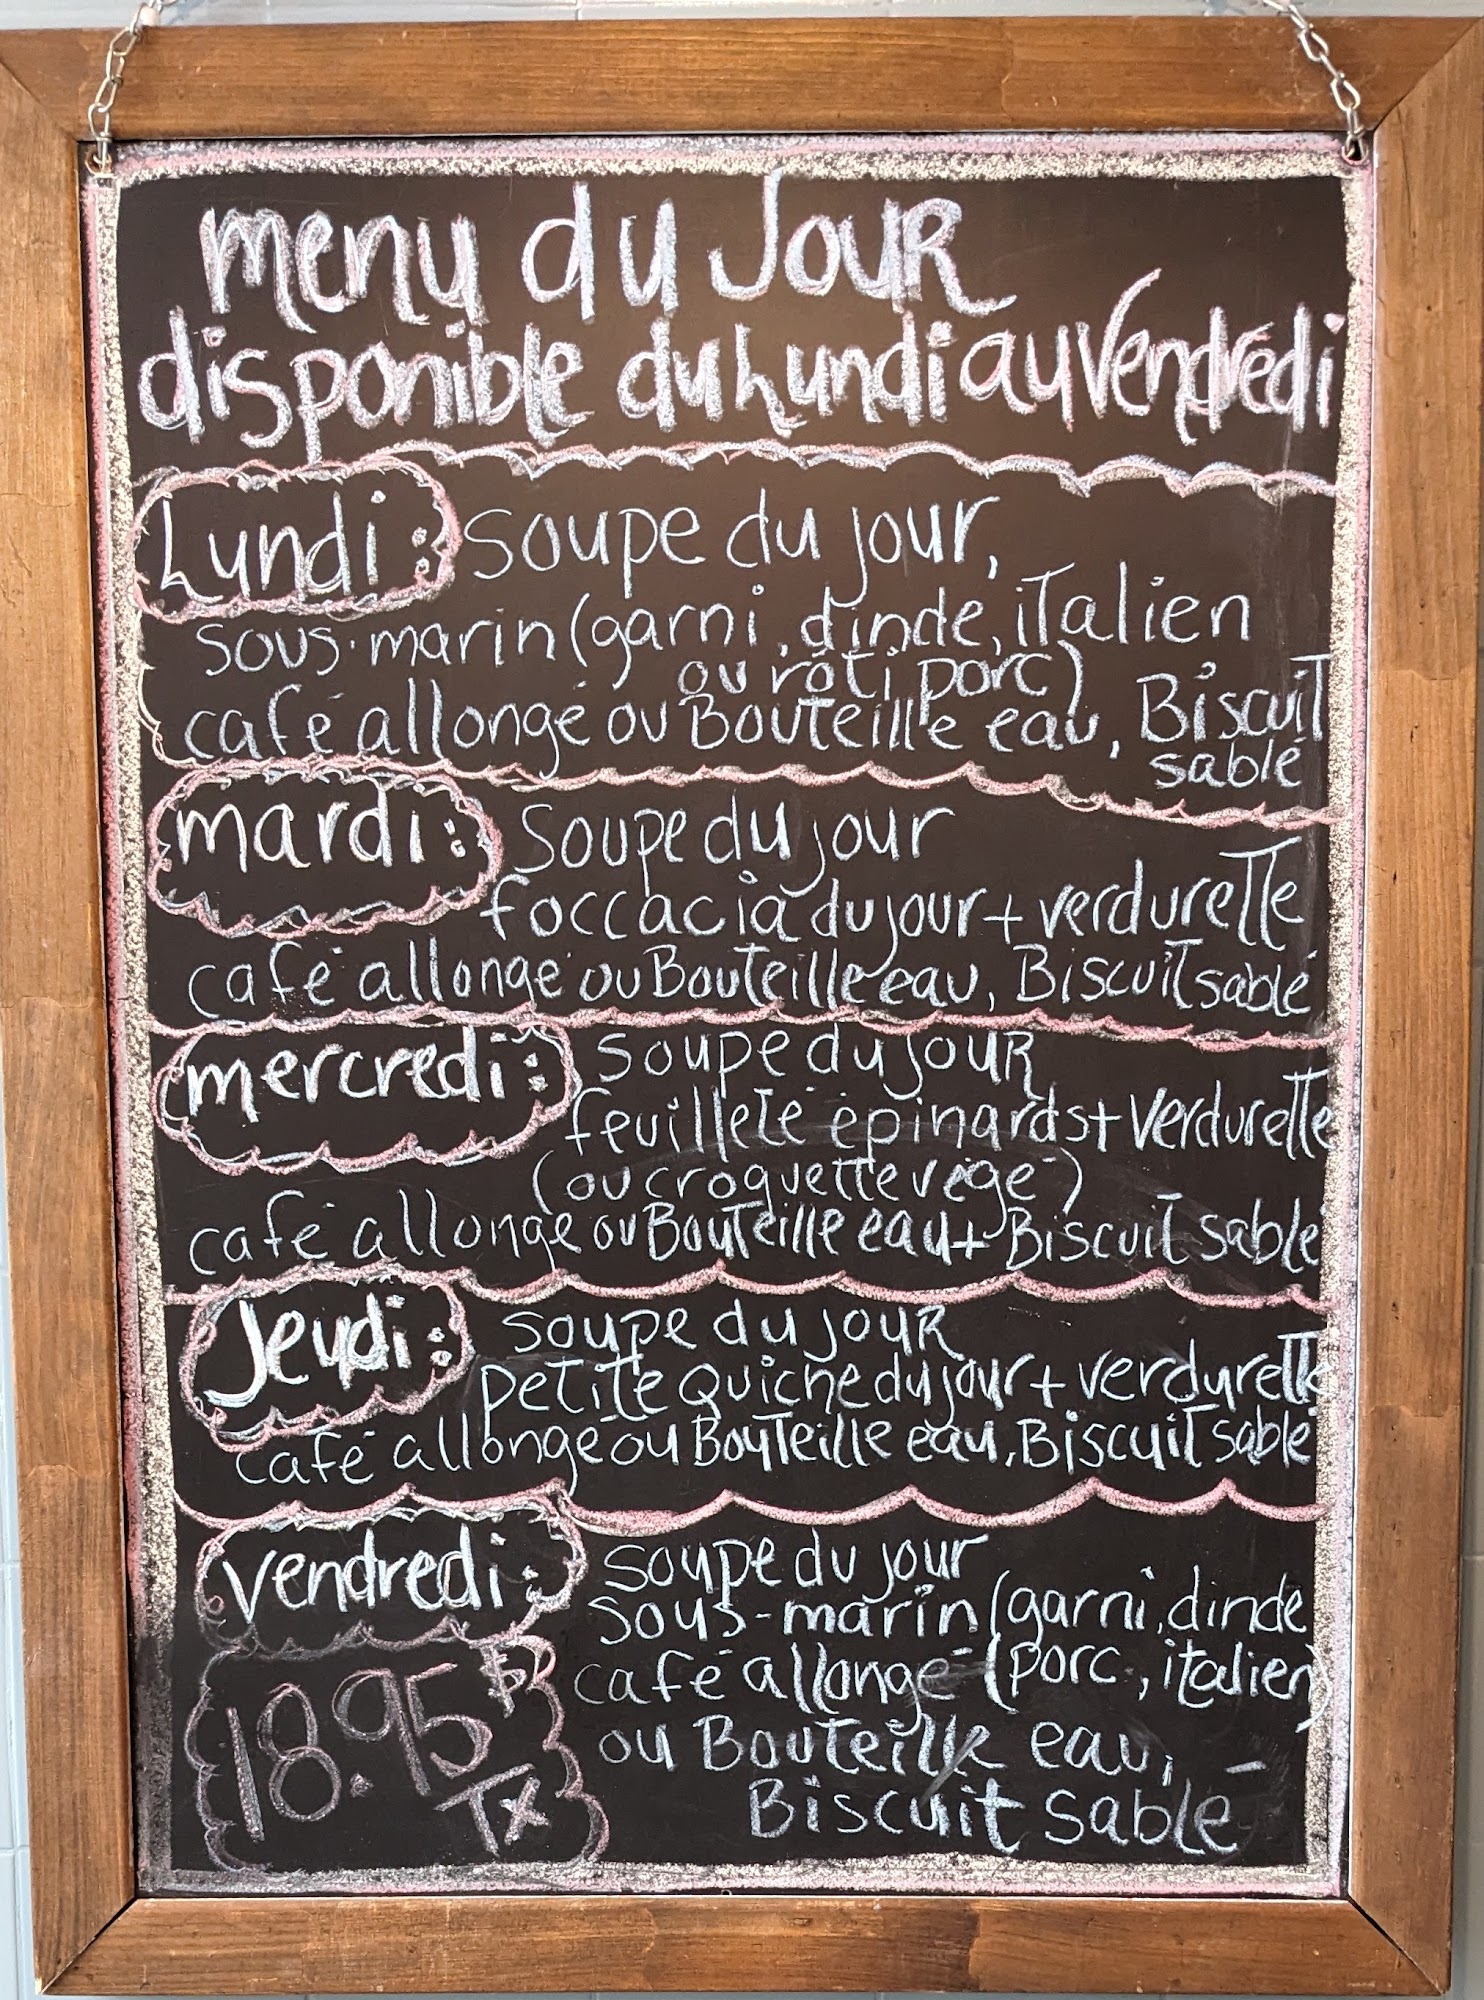 menu du Jour
disponible du Lundi au Vendredi
Lundi: soupe du jour,
sous-marin (garni, dinde, italien
ou rôti porc)
café allongé ou Bouteille eau, Biscuit
sablé
mardi: Soupe du jour
foccacia du jour + verdurette
café allongé ou Bouteille eau, Biscuit sablé
mercredi: soupe du jour
feuilleté épinards + verdurette
(ou croquette végé)
café allongé ou Bouteille eau + Biscuit sablé
Jeudi: soupe du jour
petite Quiche du jour + verdurette
café allongé ou Bouteille eau, Biscuit sablé
vendredi: soupe du jour
sous-marin (garni, dinde
café allongé (porc, italien)
ou Bouteille eau,
Biscuit sablé
18.95$
Tx